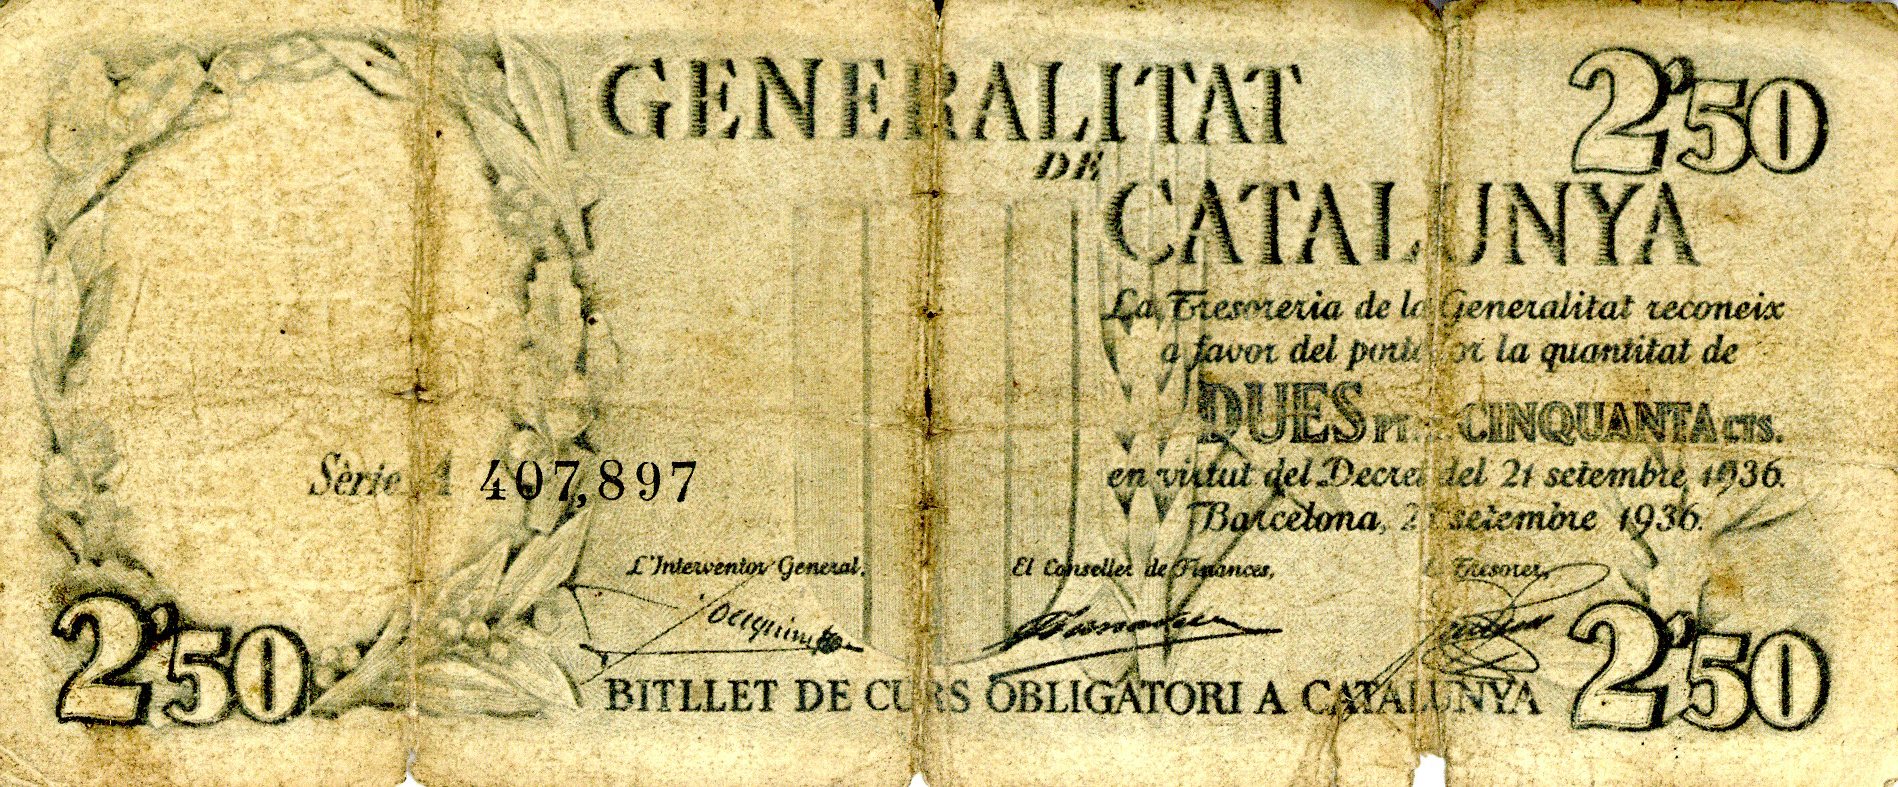 GENERALITAT
DE
CATALUNYA
2'50
La Tresoreria de la Generalitat reconeix
a favor del portador la quantitat de
DUES PTES. CINQUANTA CTS.
en virtut del Decret del 21 setembre 1936.
Barcelona, 21 setembre 1936.
Sèrie A 407,897
L'Interventor General,
El Conseller de Finances,
El Tresorer,
2'50
BITLLET DE CURS OBLIGATORI A CATALUNYA
2'50